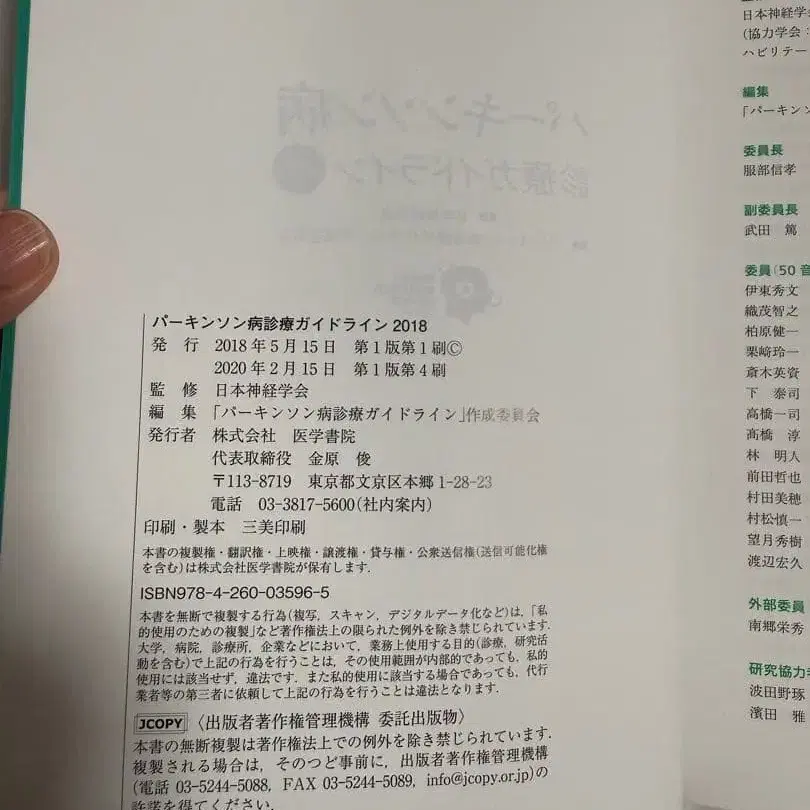 パーキンソン病診療ガイドライン 2018
発　行　2018 年 5 月 15 日　第 1 版第 1 刷©
2020 年 2 月 15 日　第 1 版第 4 刷
監　修　日本神経学会
編　集　「パーキンソン病診療ガイドライン」作成委員会
発行者　株式会社　医学書院
代表取締役　金原　俊
〒113-8719　東京都文京区本郷 1-28-23
電話　03-3817-5600(社内案内)
印刷・製本　三美印刷
本書の複製権・翻訳権・上映権・譲渡権・貸与権・公衆送信権(送信可能化権
を含む)は株式会社医学書院が保有します.
ISBN978-4-260-03596-5
本書を無断で複製する行為(複写, スキャン, デジタルデータ化など)は,「私
的使用のための複製」など著作権法上の限られた例外を除き禁じられています.
大学, 病院, 診療所, 企業などにおいて, 業務上使用する目的(診療, 研究活
動を含む)で上記の行為を行うことは, その使用範囲が内部的であっても, 私的
使用には該当せず, 違法です. また私的使用に該当する場合であっても, 代行
業者等の第三者に依頼して上記の行為を行うことは違法となります.
JCOPY 〈出版者著作権管理機構 委託出版物〉
本書の無断複製は著作権法上での例外を除き禁じられています.
複製される場合は, そのつど事前に, 出版者著作権管理機構
(電話 03-5244-5088, FAX 03-5244-5089, info@jcopy.or.jp)の
許諾を得てください.
日本神経学会
(協力学会：
ハビリテー
編集
「パーキン
委員長
服部信孝
副委員長
武田　篤
委員(50 音
伊東秀文
織茂智之
柏原健一
栗﨑玲一
斎木英資
下　泰司
高橋一司
高橋　淳
林　明人
前田哲也
村田美穂
村松慎一
望月秀樹
渡辺宏久
外部委員
南郷栄秀
研究協力
波田野琢
濱田　雅